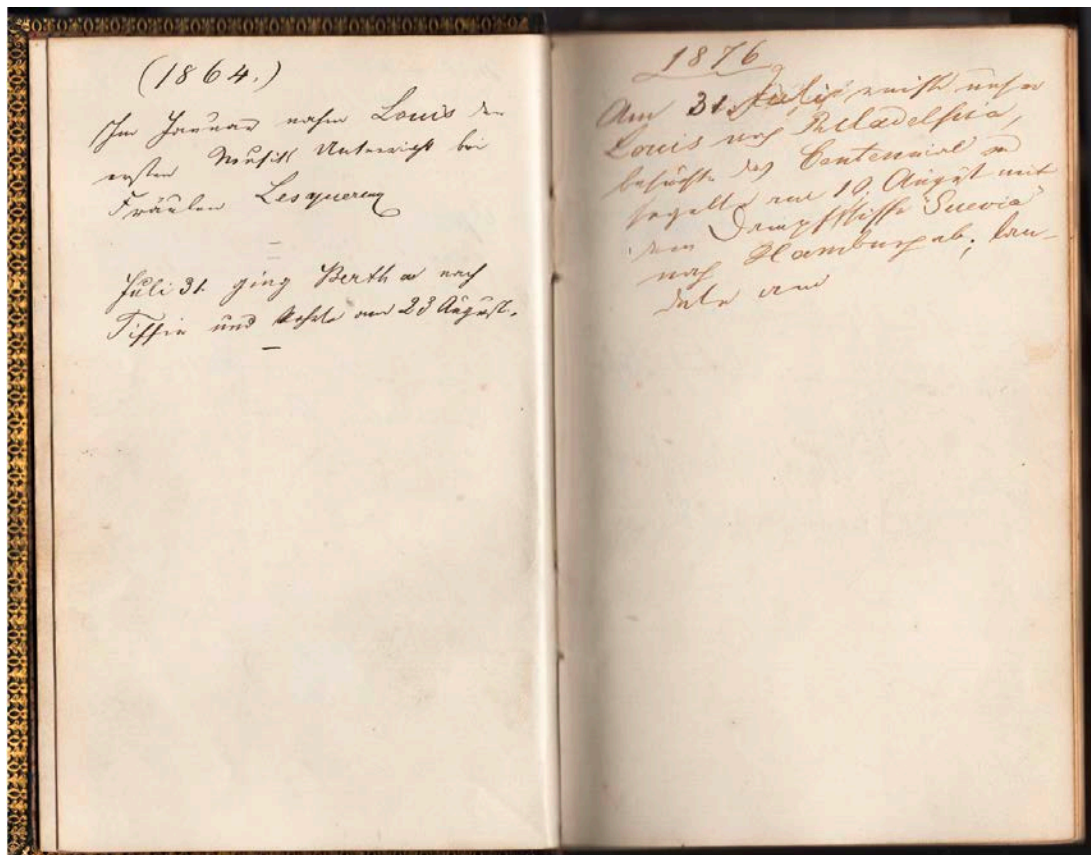 (1864.)
Im Januar nahm Louis den
ersten Musik Unterricht bei
Fräulen Lesquereux
Juli 31. ging Bertha nach
Tiffin und kehrte am 23 August.
1876
Am 31. Juli reiste unser
Louis nach Philadelphia,
besuchte das Centennial und
segelte am 10. August mit
dem Dampfschiffe Suevia
nach Hamburg ab; lan-
dete am